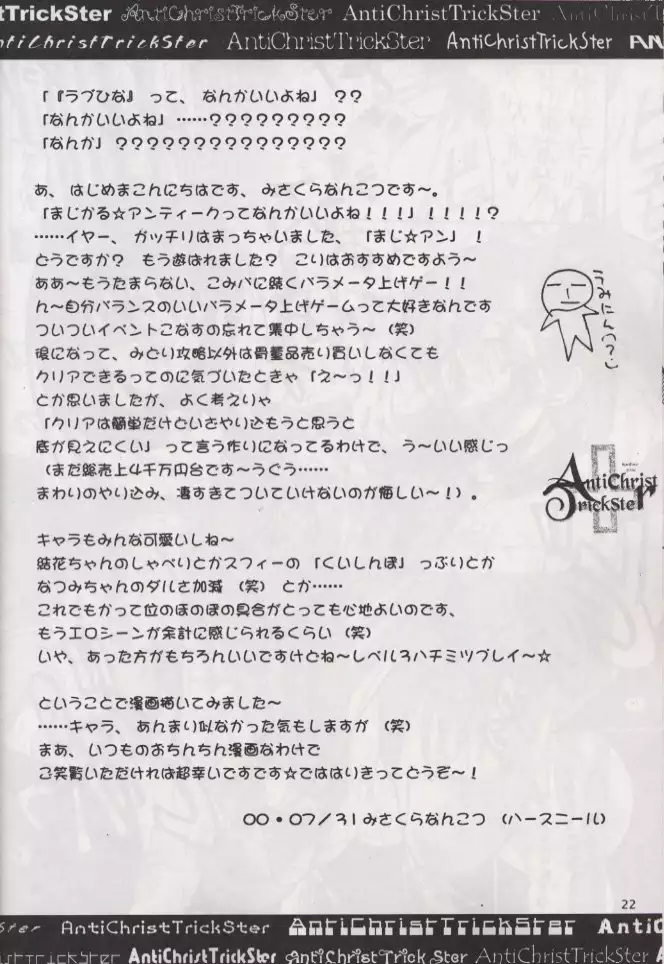 tTrickSter AntiChristTrickSter AntiChristTrickSter AntiChristT
ntiChristTrickSter AntiChristTrickSter AntiChristTrickSter AN
「『ラブひな』 って、 なんかいいよね」 ??
「なんかいいよね」 ……?????????
「なんか」 ???????????????
あ、 はじめまこんにちはです、 みさくらなんこつです〜。
「まじかる☆アンティークってなんかいいよね!!!」 !!!!?
……イヤー、 ガッチリはまっちゃいました、 「まじ☆アン」 !
どうですか? もう遊ばれました? こりはおすすめですよう〜
ああ〜もうたまらない、こみパに続くパラメータ上げゲー!!
ん〜自分バランスのいいパラメータ上げゲームって大好きなんです
ついついイベントこなすの忘れて集中しちゃう〜 (笑)
後になって、 みどり攻略以外は骨董品売り買いしなくても
クリアできるってのに気づいたときゃ 「え〜っ!!」
とか思いましたが、 よく考えりゃ
「クリアは簡単だけどいざやり込もうと思うと
底が見えにくい」 って言う作りになってるわけで、 う〜いい感じっ
(まだ総売上4千万円台です〜うぐう……
まわりのやり込み、凄すぎてついていけないのが悔しい〜!) 。
キャラもみんな可愛いしね〜
結花ちゃんのしゃべりとかスフィーの 「くいしんぼ」 っぷりとか
なつみちゃんのダルさ加減 (笑) とか……
これでもかって位のほのぼの具合がとっても心地よいのです、
もうエロシーンが余計に感じられるくらい (笑)
いや、 あった方がもちろんいいですけどね〜レベル3ハチミツプレイ〜☆
ということで漫画描いてみました〜
……キャラ、 あんまり似なかった気もしますが (笑)
まあ、 いつものおちんちん漫画なわけで
ご笑覧いただければ超幸いですです☆でははりきってどうぞ〜!
00・07/31みさくらなんこつ (ハースニール)
うみにん(?)
AntiChrist
TrickSter
22
AntiChristTrickSter AntiChristTrickSter AntiC
AntiChristTrickSter AntiChristTrickSter AntiChristTrickSter